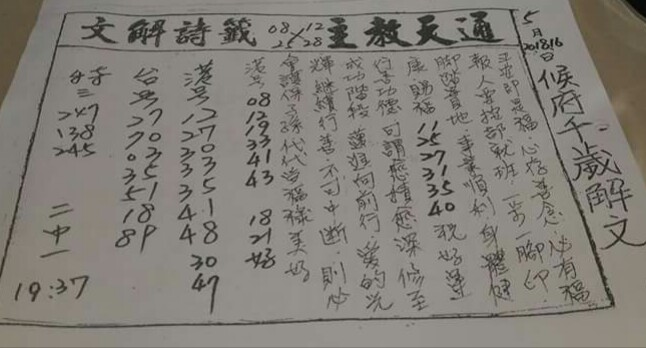 通天教主 08/12 25/28 籤詩解文
5月
2018.16日
候府千歲解文
平安即是福 心存善念 必有福
報人要按部就班 一步一腳印
腳踏實地 事業順利 身體健
康 賜福 11 25 27 31 35 40 祝好運
行善功德 可謂愈積愈深 修至
成功階段 邁進向前行 愛的光
輝 繼續行善 不可中斷 則必
會護保子孫代代吉福祿美好
港号 08 12 19 33 41 43 18 21 好
港号 12 27 03 33 35 41 48 30 47
台号 27 03 35 51 18 89
三 247 138 245 二中一 19:37